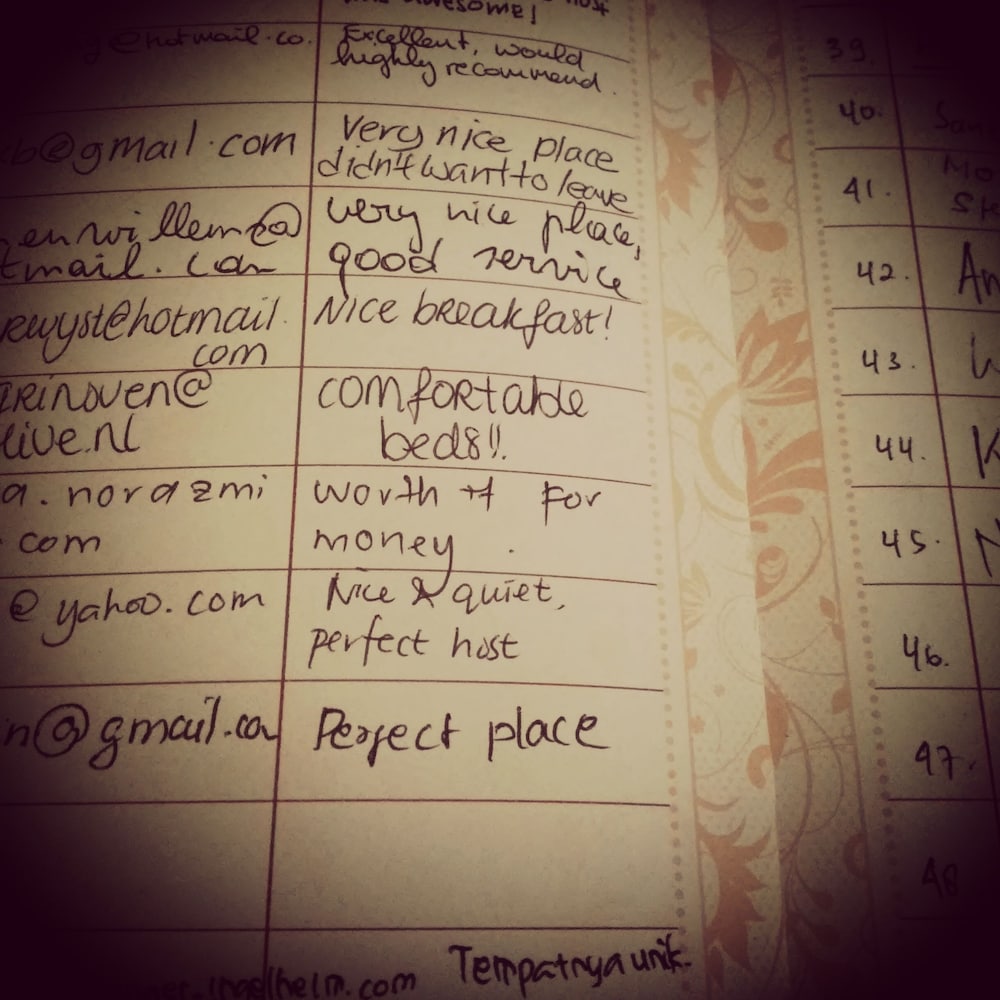 awesome!
@hotmail.co.
Excellent, would
highly recommend.
b@gmail.com
Very nice place
didn't want to leave
enwillem@
tmail.com
very nice place,
good service
rewyst@hotmail.
com
Nice breakfast!
irinoven@
live.nl
comfortable
beds!!
a.norazmi
.com
worth it for
money.
@yahoo.com
Nice & quiet,
perfect host
n@gmail.com
Perfect place
ingelheim.com
Tempatnya unik.
39.
40.
41.
42.
43.
44.
45.
46.
47.
48